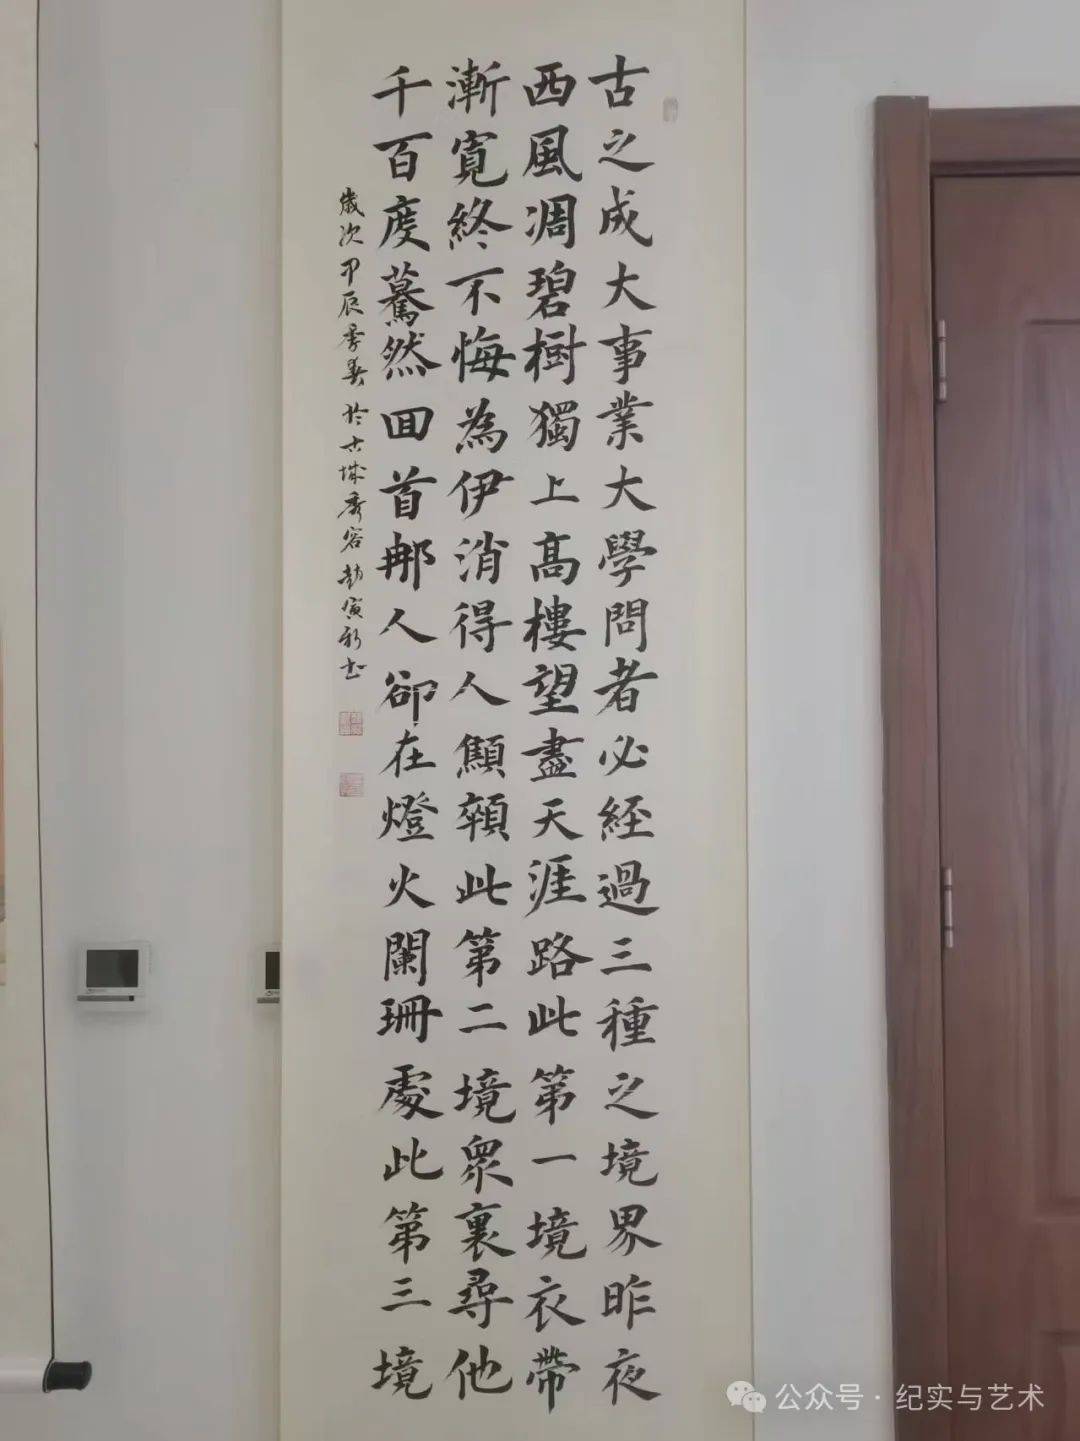 古之成大事業大學問者必經過三種之境界昨夜
西風凋碧樹獨上高樓望盡天涯路此第一境衣帶
漸寬終不悔為伊消得人顦顇此第二境眾裏尋他
千百度驀然回首那人卻在燈火闌珊處此第三境
歲次甲辰季夏於古城秀容趙寅新書
公众号·纪实与艺术